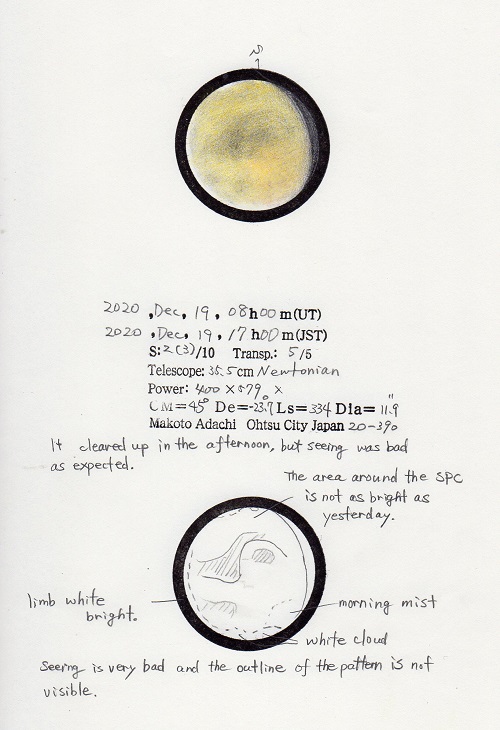 S
2020 ,Dec, 19, 08h00m(UT)
2020 ,Dec, 19, 17h00m(JST)
S:2(3)/10 Transp.: 5/5
Telescope: 35.5cm Newtonian
Power: 400 × 579 ×
CM=45° De=-23.7 Ls=334 Dia= 11.9"
Makoto Adachi Ohtsu City Japan 20-390
It cleared up in the afternoon, but seeing was bad
as expected.
The area around the SPC
is not as bright as
yesterday.
limb white
bright.
morning mist
white cloud
Seeing is very bad and the outline of the pattern is not
visible.